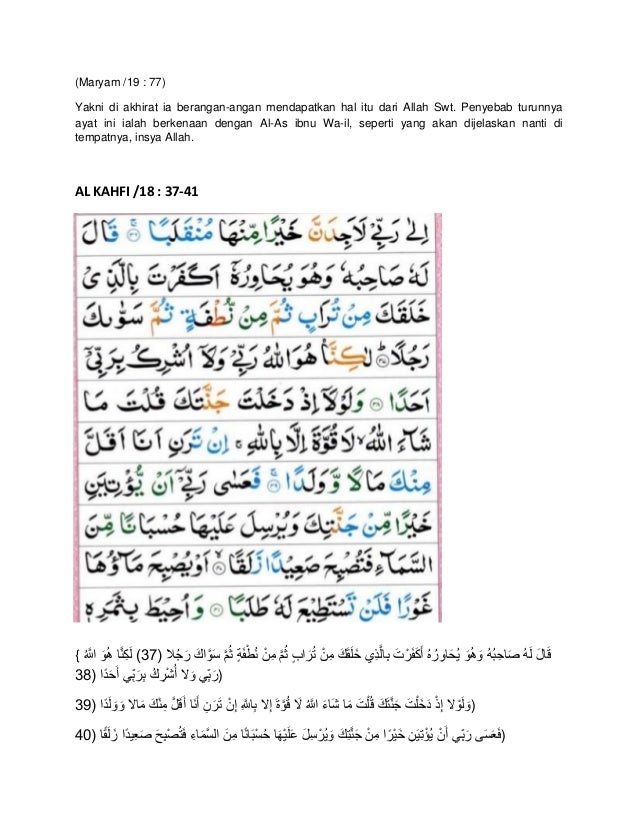 (Maryam /19 : 77)
Yakni di akhirat ia berangan-angan mendapatkan hal itu dari Allah Swt. Penyebab turunnya
ayat ini ialah berkenaan dengan Al-As ibnu Wa-il, seperti yang akan dijelaskan nanti di
tempatnya, insya Allah.
AL KAHFI /18 : 37-41
اِلٰى رَبِّيْ لَاَجِدَنَّ خَيْرًا مِّنْهَا مُنْقَلَبًا ﴿٣٦﴾ قَالَ
لَهٗ صَاحِبُهٗ وَهُوَ يُحَاوِرُهٗٓ اَكَفَرْتَ بِالَّذِيْ
خَلَقَكَ مِنْ تُرَابٍ ثُمَّ مِنْ نُّطْفَةٍ ثُمَّ سَوّٰىكَ
رَجُلًا ﴿٣٧﴾ لٰكِنَّا۠ هُوَ اللّٰهُ رَبِّيْ وَلَآ اُشْرِكُ بِرَبِّيْٓ
اَحَدًا ﴿٣٨﴾ وَلَوْلَآ اِذْ دَخَلْتَ جَنَّتَكَ قُلْتَ مَا
شَآءَ اللّٰهُ ۙ لَا قُوَّةَ اِلَّا بِاللّٰهِ ۚ اِنْ تَرَنِ اَنَا اَقَلَّ
مِنْكَ مَالًا وَّوَلَدًا ﴿٣٩﴾ فَعَسٰى رَبِّيْٓ اَنْ يُّؤْتِيَنِ
خَيْرًا مِّنْ جَنَّتِكَ وَيُرْسِلَ عَلَيْهَا حُسْبَانًا مِّنَ
السَّمَآءِ فَتُصْبِحَ صَعِيْدًا زَلَقًا ﴿٤٠﴾ اَوْ يُصْبِحَ مَآؤُهَا
غَوْرًا فَلَنْ تَسْتَطِيْعَ لَهٗ طَلَبًا ﴿٤١﴾ وَاُحِيْطَ بِثَمَرِهٖ
{ قَالَ لَهُ صَاحِبُهُ وَهُوَ يُحَاوِرُهُ أَكَفَرْتَ بِالَّذِي خَلَقَكَ مِنْ تُرَابٍ ثُمَّ مِنْ نُطْفَةٍ ثُمَّ سَوَّاكَ رَجُلا (37) لَكِنَّا هُوَ اللَّهُ
رَبِّي وَلا أُشْرِكُ بِرَبِّي أَحَدًا (38)
وَلَوْلا إِذْ دَخَلْتَ جَنَّتَكَ قُلْتَ مَا شَاءَ اللَّهُ لَا قُوَّةَ إِلا بِاللَّهِ إِنْ تَرَنِ أَنَا أَقَلَّ مِنْكَ مَالا وَوَلَدًا (39)
فَعَسَى رَبِّي أَنْ يُؤْتِيَنِ خَيْرًا مِنْ جَنَّتِكَ وَيُرْسِلَ عَلَيْهَا حُسْبَانًا مِنَ السَّمَاءِ فَتُصْبِحَ صَعِيدًا زَلَقًا (40)